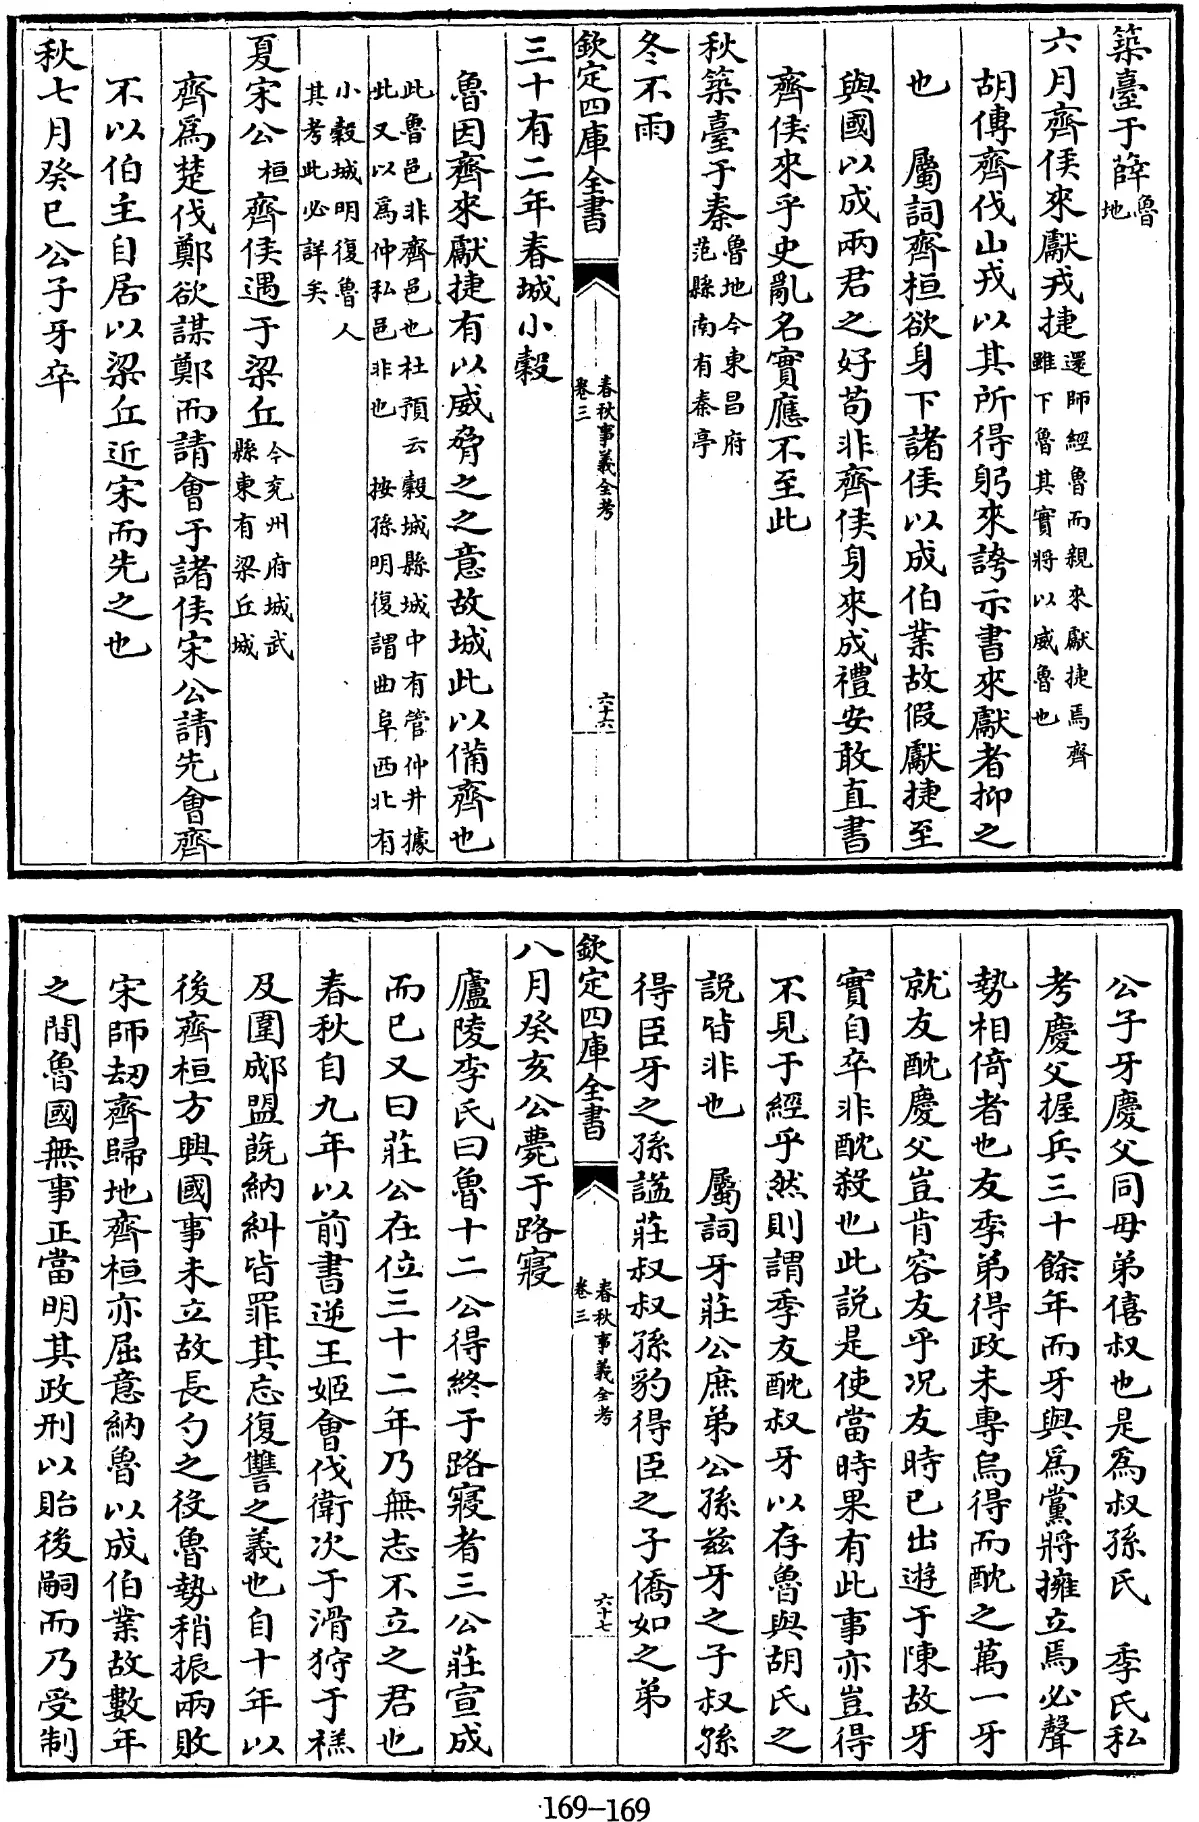 築臺于薛魯地
六月齊侯來獻戎捷還師經魯而親來獻捷焉齊雖下魯其實將以威魯也
胡傳齊伐山戎以其所得躬來誇示書來獻者抑之
也　屬詞齊桓欲身下諸侯以成伯業故假獻捷至
與國以成兩君之好苟非齊侯身來成禮安敢直書
齊侯來乎史亂名實應不至此
秋築臺于秦魯地今東昌府范縣南有秦亭
冬不雨
欽定四庫全書
春秋事義全考
卷三
六十六
三十有二年春城小穀
魯因齊來獻捷有以威脅之之意故城此以備齊也
此魯邑非齊邑也杜預云穀城縣城中有管仲井據
此又以為仲私邑非也　按孫明復謂曲阜西北有
小穀城明復魯人
其考此必詳矣
夏宋公桓齊侯遇于梁丘今兖州府城武縣東有梁丘城
齊為楚伐鄭欲謀鄭而請會于諸侯宋公請先會齊
不以伯主自居以梁丘近宋而先之也
秋七月癸巳公子牙卒
公子牙慶父同母弟僖叔也是為叔孫氏　季氏私
考慶父握兵三十餘年而牙與為黨將擁立焉必聲
勢相倚者也友季弟得政未專烏得而酖之萬一牙
就友酖慶父豈肯容友乎况友時已出遊于陳故牙
實自卒非酖殺也此説是使當時果有此事亦豈得
不見于經乎然則謂季友酖叔牙以存魯與胡氏之
説皆非也　屬詞牙莊公庶弟公孫兹牙之子叔孫
得臣牙之孫謚莊叔叔孫豹得臣之子僑如之弟
欽定四庫全書
春秋事義全考
卷三
六十七
八月癸亥公薨于路寢
廬陵李氏曰魯十二公得終于路寢者三公莊宣成
而已又曰莊公在位三十二年乃無志不立之君也
春秋自九年以前書逆王姬會伐衛次于滑狩于禚
及圍郕盟蔇納糾皆罪其忘復讐之義也自十年以
後齊桓方興國事未立故長勺之役魯勢稍振兩敗
宋師刼齊歸地齊桓亦屈意納魯以成伯業故數年
之間魯國無事正當明其政刑以貽後嗣而乃受制
169-169